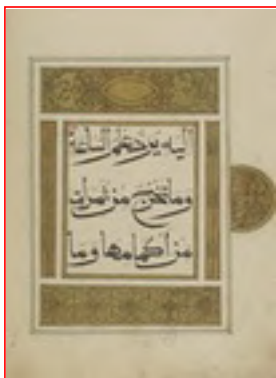 إليه يرد علم الساعة
وما تخرج من ثمرات
من أكمامها وما